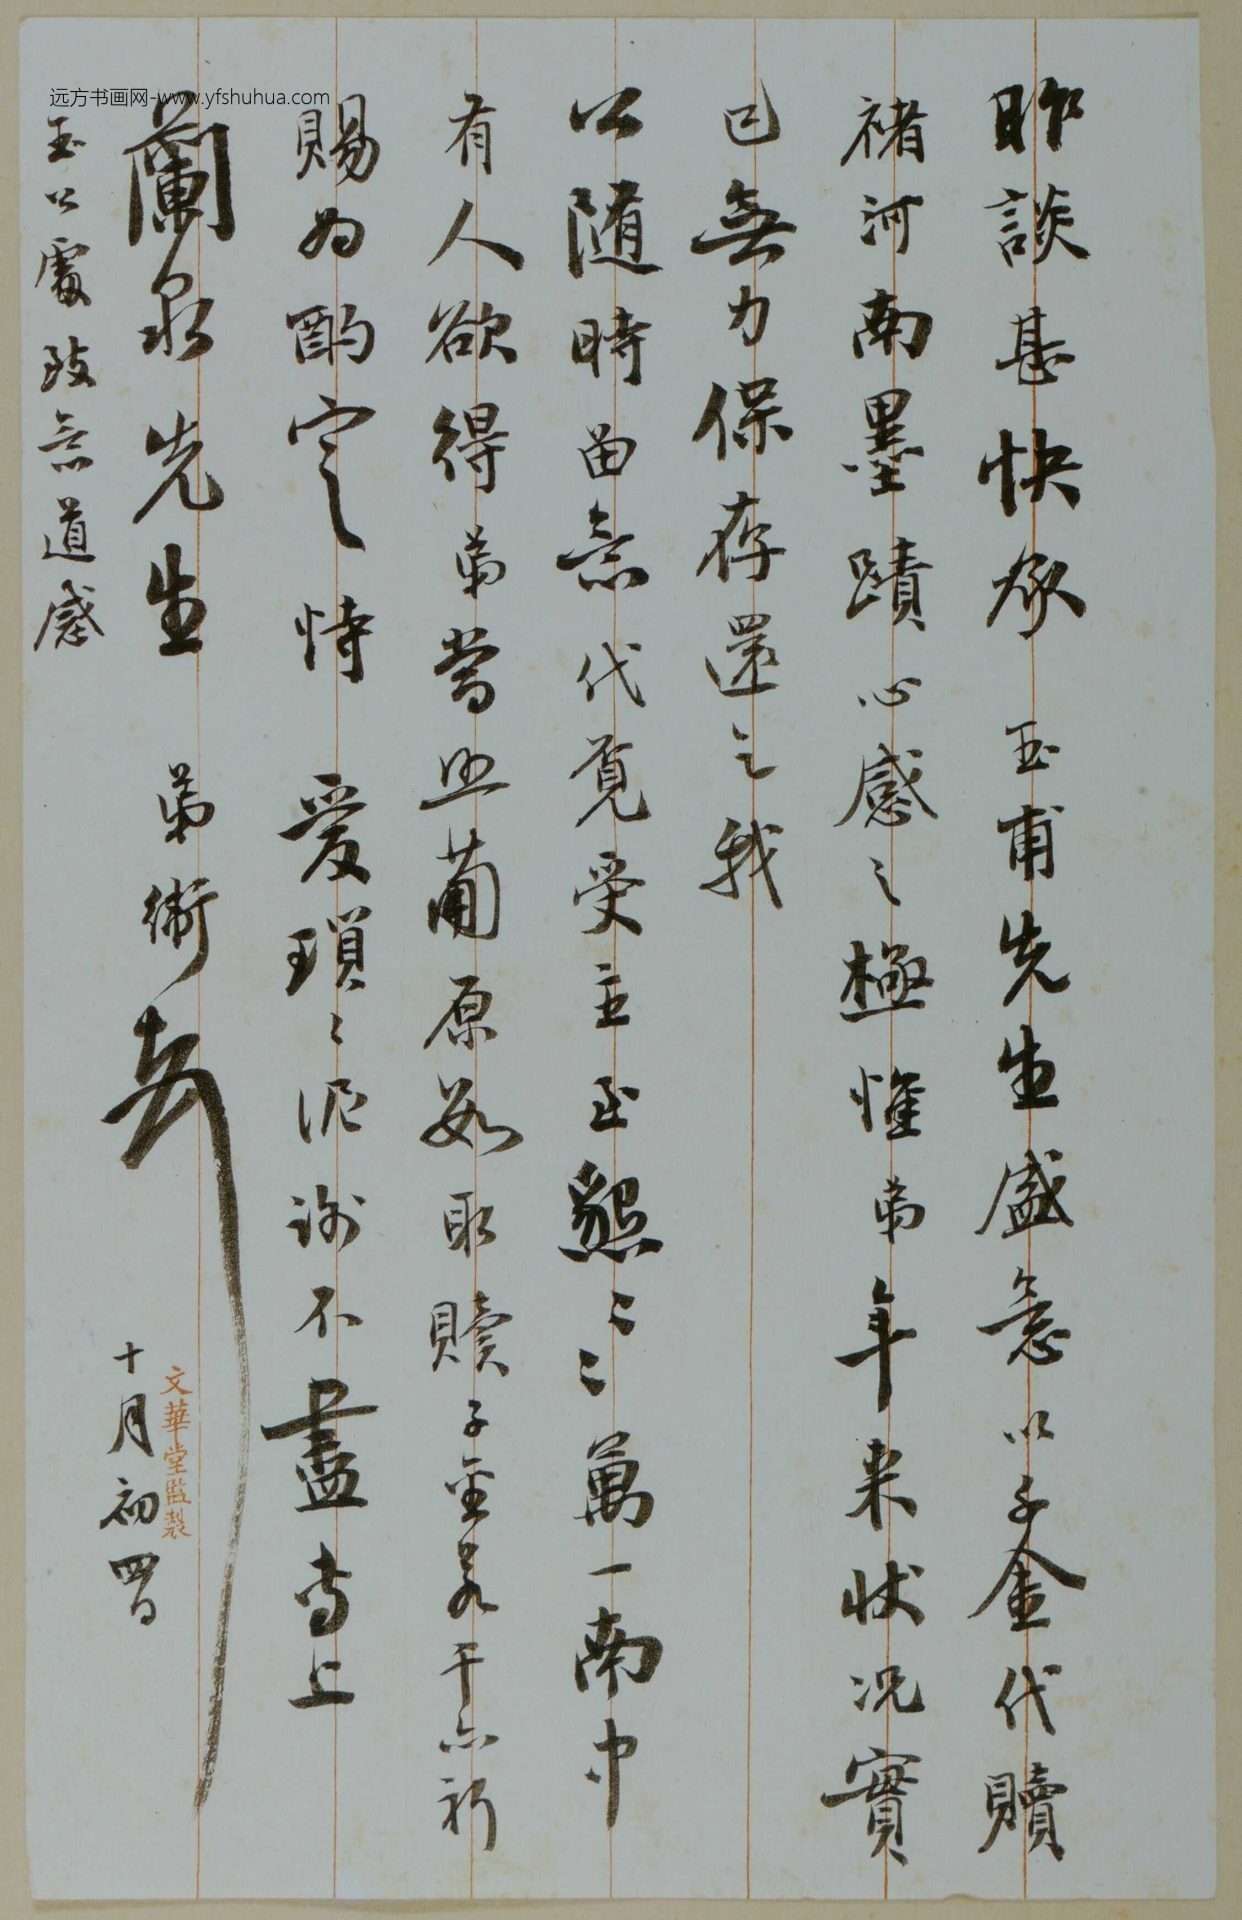 昨談甚快承　玉甫先生盛意以千金代贖
褚河南墨蹟心感之極惟弟年来狀况實
已無力保存還之我
公随時留意代覓受主至懇〻〻萬一南中
有人欲得弟當照蘭原數取贖子金若干亦祈
賜為酌定恃　愛瑣〻泥謝不盡專上
蘭泉先生　弟衡
十月初四日
玉公處致意道感
文華堂監製
远方书画网-www.yfshuhua.com